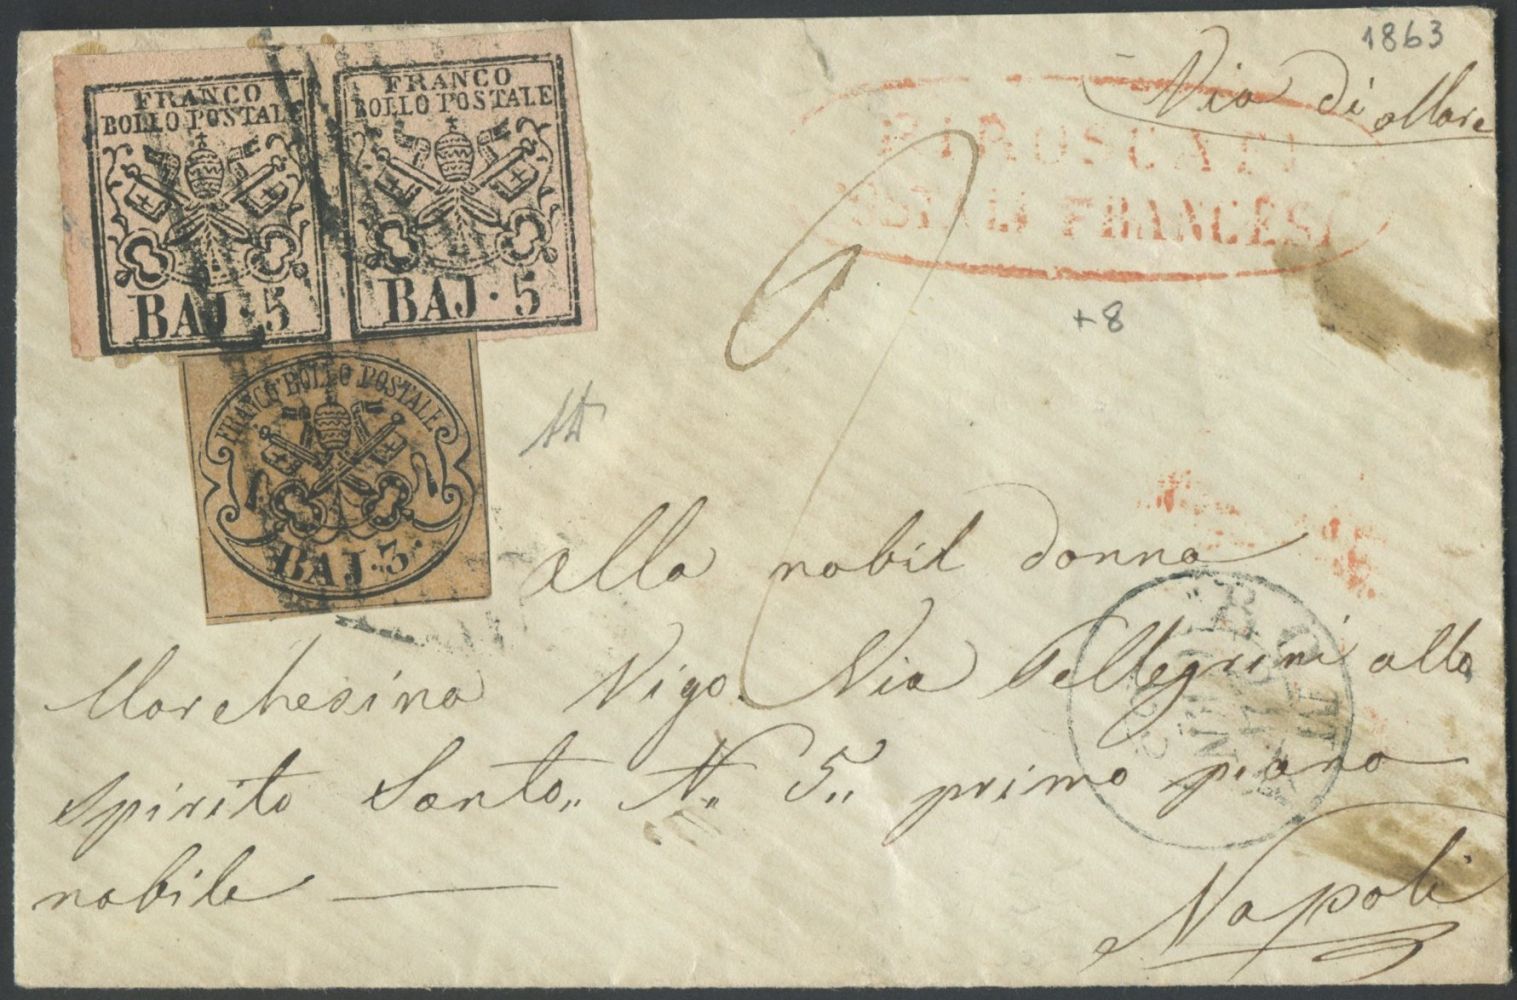 1863
Via di Mare
FRANCO
BOLLO POSTALE
BAJ·5
FRANCO
BOLLO POSTALE
BAJ·5
PIROSCAFI
POSTALI FRANCESI
+8
FRANCO BOLLO POSTALE
BAJ·3·
alla nobil donna
Marchesina Vigo Via Pellegrini alla
Spirito Santo,, N,, 5,, primo piano
nobile
Napoli